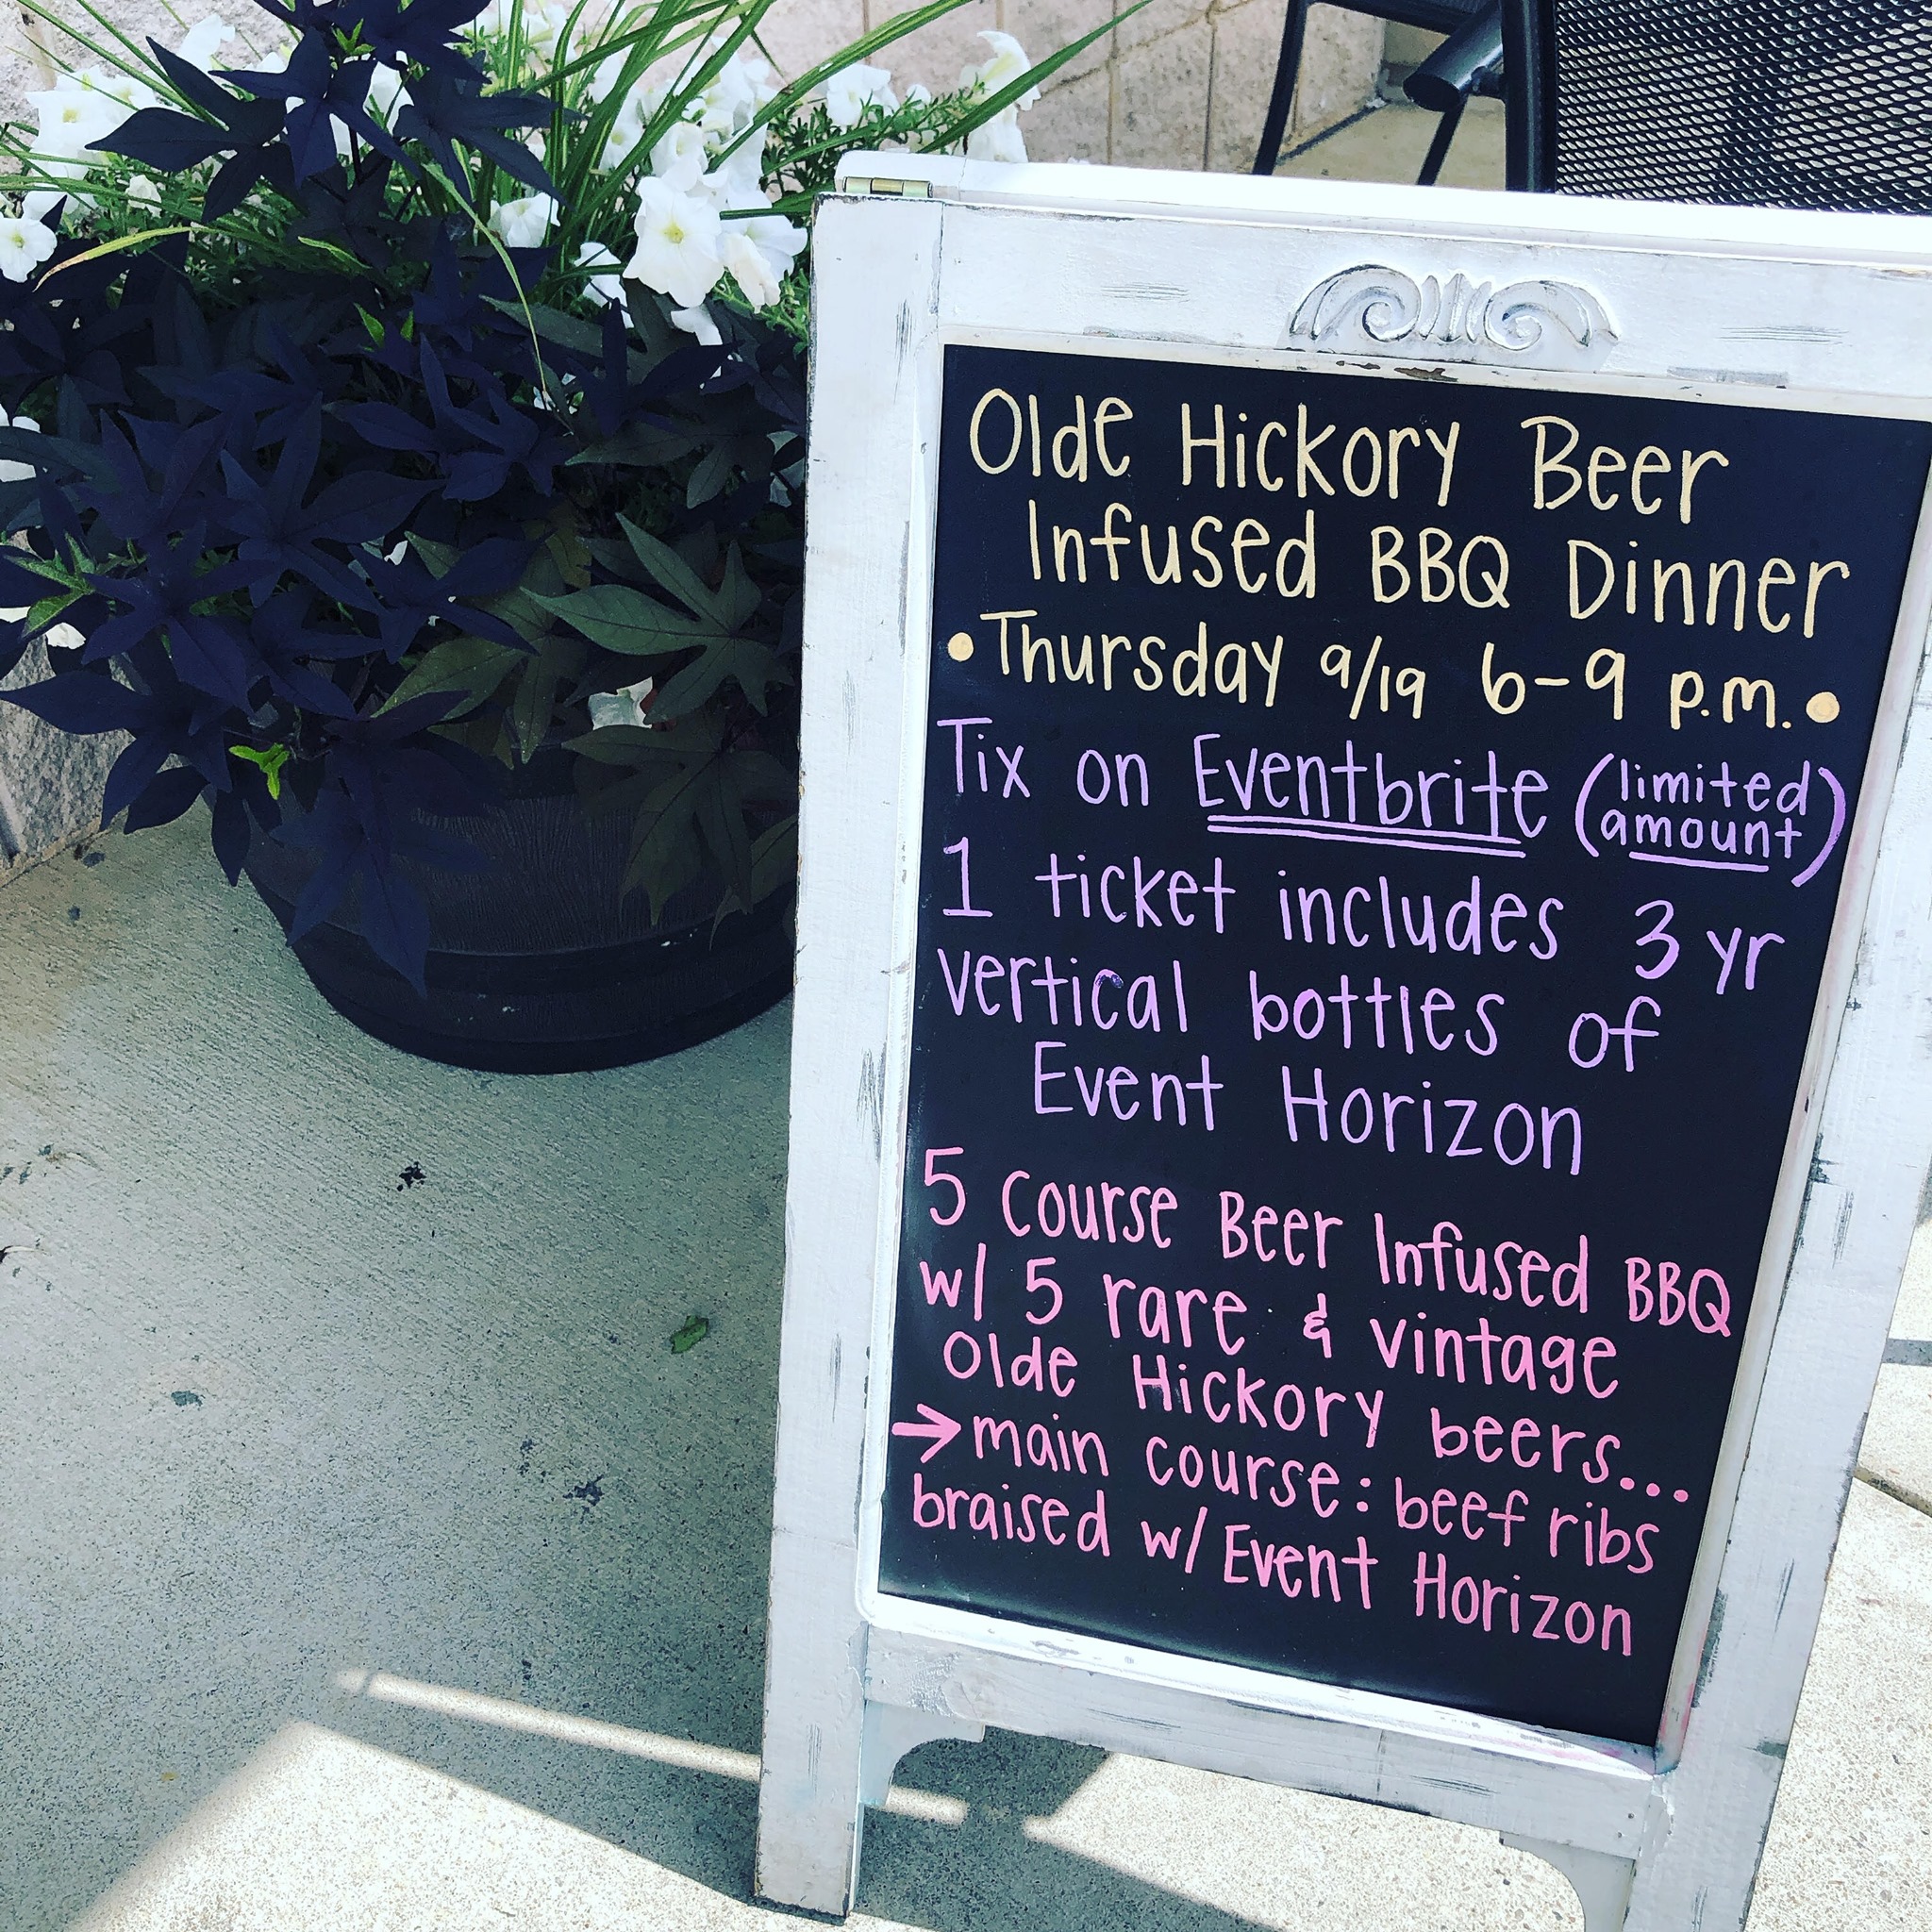 Olde Hickory Beer
Infused BBQ Dinner
•Thursday 9/19 6-9 p.m.•
Tix on Eventbrite (limited amount)
1 ticket includes 3 yr
vertical bottles of
Event Horizon
5 Course Beer Infused BBQ
w/ 5 rare & vintage
Olde Hickory beers...
→main course: beef ribs
braised w/ Event Horizon